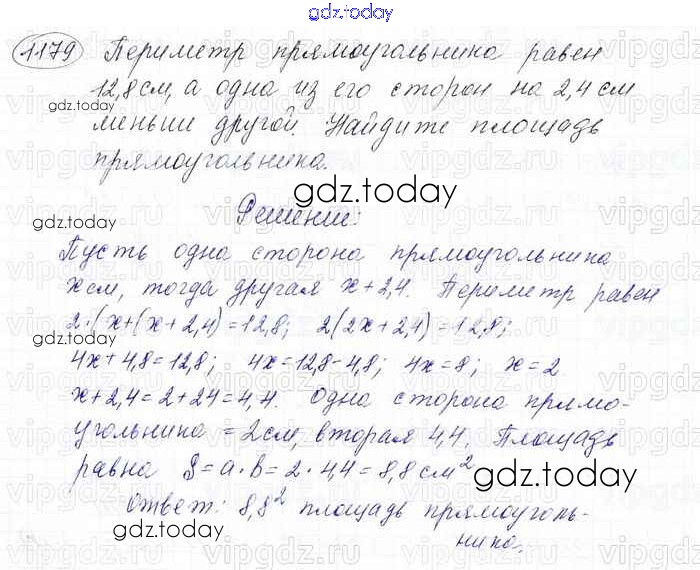 gdz.today
1179 Периметр прямоугольника равен
12,8 см, а одна из его сторон на 2,4 см
gdz.today
меньше другой. Найдите площадь
прямоугольника.
gdz.today
gdz.today
Решение:
Пусть одна сторона прямоугольника
x см, тогда другая x+2,4. Периметр равен
2·(x+(x+2,4)=12,8; 2(2x+2,4)=12,8;
gdz.today
4x+4,8=12,8; 4x=12,8-4,8; 4x=8; x=2
x+2,4=2+2,4=4,4. Одна сторона прямо-
угольника = 2см, вторая 4,4. Площадь
равна S=a·b=2·4,4=8,8 см²
gdz.today
Ответ: 8,8² площадь прямоуголь-
ника.
vipgdz.ru